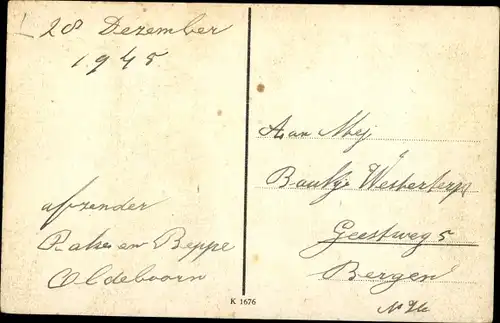 28 Dezember
1945
afzender
en Beppe
Oldeboorn
K 1676
Aan Mej
Baukje Westerterp
Geestweg 5
Bergen
N H